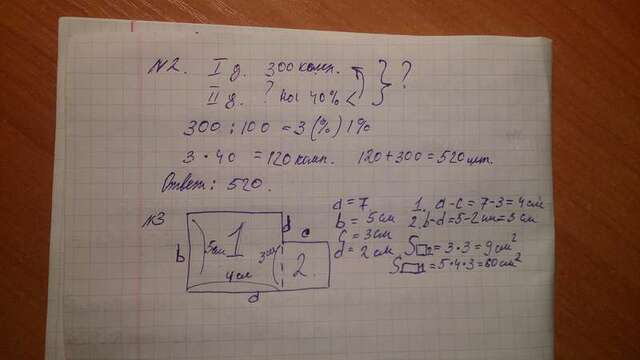 №2. I д. 300 комп. } ?
II д. ? на 40% <
300 : 100 = 3 (%) 1%
3 · 40 = 120 комп. 120 + 300 = 520 шт.
Ответ: 520.
№3
d = 7 1. a - c = 7 - 3 = 4 см
b = 5 см 2. b - d = 5 - 2 = 3 см
c = 3 см
d = 2 см S = 3 · 3 = 9 см²
S = 5 · 4 · 3 = 60 см²
b 5 см 1 3 см d c
4 см 2.
d